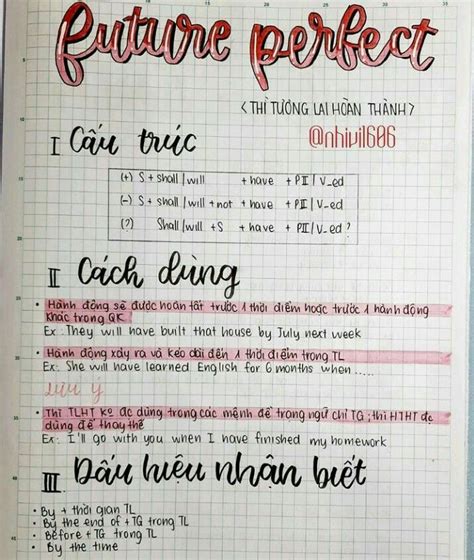 future perfect
<THÌ TƯƠNG LAI HOÀN THÀNH>
@nhivil606
I Cấu trúc
(+) S + shall/will + have + PII/V_ed
(-) S + shall/will + not + have + PII/V_ed
(?) Shall/will + S + have + PII/V_ed?
II Cách dùng
• Hành động sẽ được hoàn tất trước 1 thời điểm hoặc trước 1 hành động
khác trong QK.
Ex: They will have built that house by July next week
• Hành động xảy ra và kéo dài đến 1 thời điểm trong TL
Ex: She will have learned English for 6 months when .....
Lưu ý
• Thì TLHT ko đc dùng trong các mệnh đề trạng ngữ chỉ TG; thì HTHT đc
dùng để thay thế
Ex: I'll go with you when I have finished my homework
III Dấu hiệu nhận biết
• By + thời gian TL
• By the end of + TG trong TL
• Before + TG trong TL
• By the time